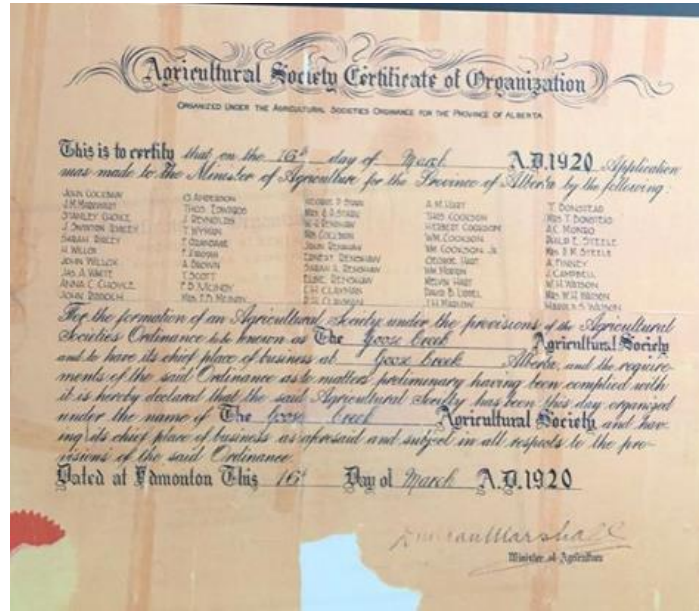 Agricultural Society Certificate of Organization
ORGANIZED UNDER THE AGRICULTURAL SOCIETIES ORDINANCE FOR THE PROVINCE OF ALBERTA
This is to certify that on the 16th day of March A.D.1920 Application
was made to the Minister of Agriculture for the Province of Alberta by the following:
JOHN
J.M.
STANLEY CHOYCE
J.
SARAH
H. WILLOX
JOHN WILLOX
JAS. A. WHITE
ANNA C. CHOYCE
JOHN
ANDERSON
THOS. EDWARDS
J. REYNOLDS
T. WYMAN
F.
F.
A. BROWN
T. SCOTT
F. D. MUNDY
MRS. F. D. MUNDY
GEORGE P. STARK
MRS. STARK
W.
MRS.
JOHN RENSHAW
ERNEST RENSHAW
SARAH A. RENSHAW
ELSIE RENSHAW
C.H. CLAYMAN
CLAYMAN
A. M. HART
THOS. COOKSON
HERBERT COOKSON
WM. COOKSON
WM. COOKSON, JR.
GEORGE HART
WM. MORTON
MELVIN HART
DAVID B.
J.H.
T. DONSTEAD
MRS. T. DONSTEAD
A.C. MUNRO
DAVID E. STEELE
MRS. STEELE
A. FINNEY
J. CAMPBELL
W.H. WATSON
MRS. W.H. WATSON
WATSON
For the formation of an Agricultural Society under the provisions of the Agricultural
Societies Ordinance to be known as The Goose Creek Agricultural Society
and to have its chief place of business at Goose Creek Alberta, and the require-
ments of the said Ordinance as to matters preliminary having been complied with
it is hereby declared that the said Agricultural Society has been this day organized
under the name of The Goose Creek Agricultural Society and hav-
ing its chief place of business as aforesaid and subject in all respects to the pro-
visions of the said Ordinance.
Dated at Edmonton This 16th Day of March A.D.1920
Duncan Marshall
Minister of Agriculture